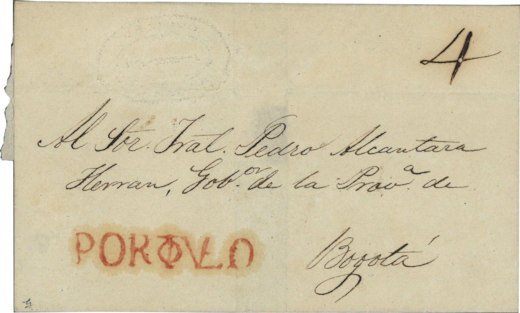 4
Al Sor. Gral. Pedro Alcantara
Herran, Gob.or de la Prov.a de
Bogotá